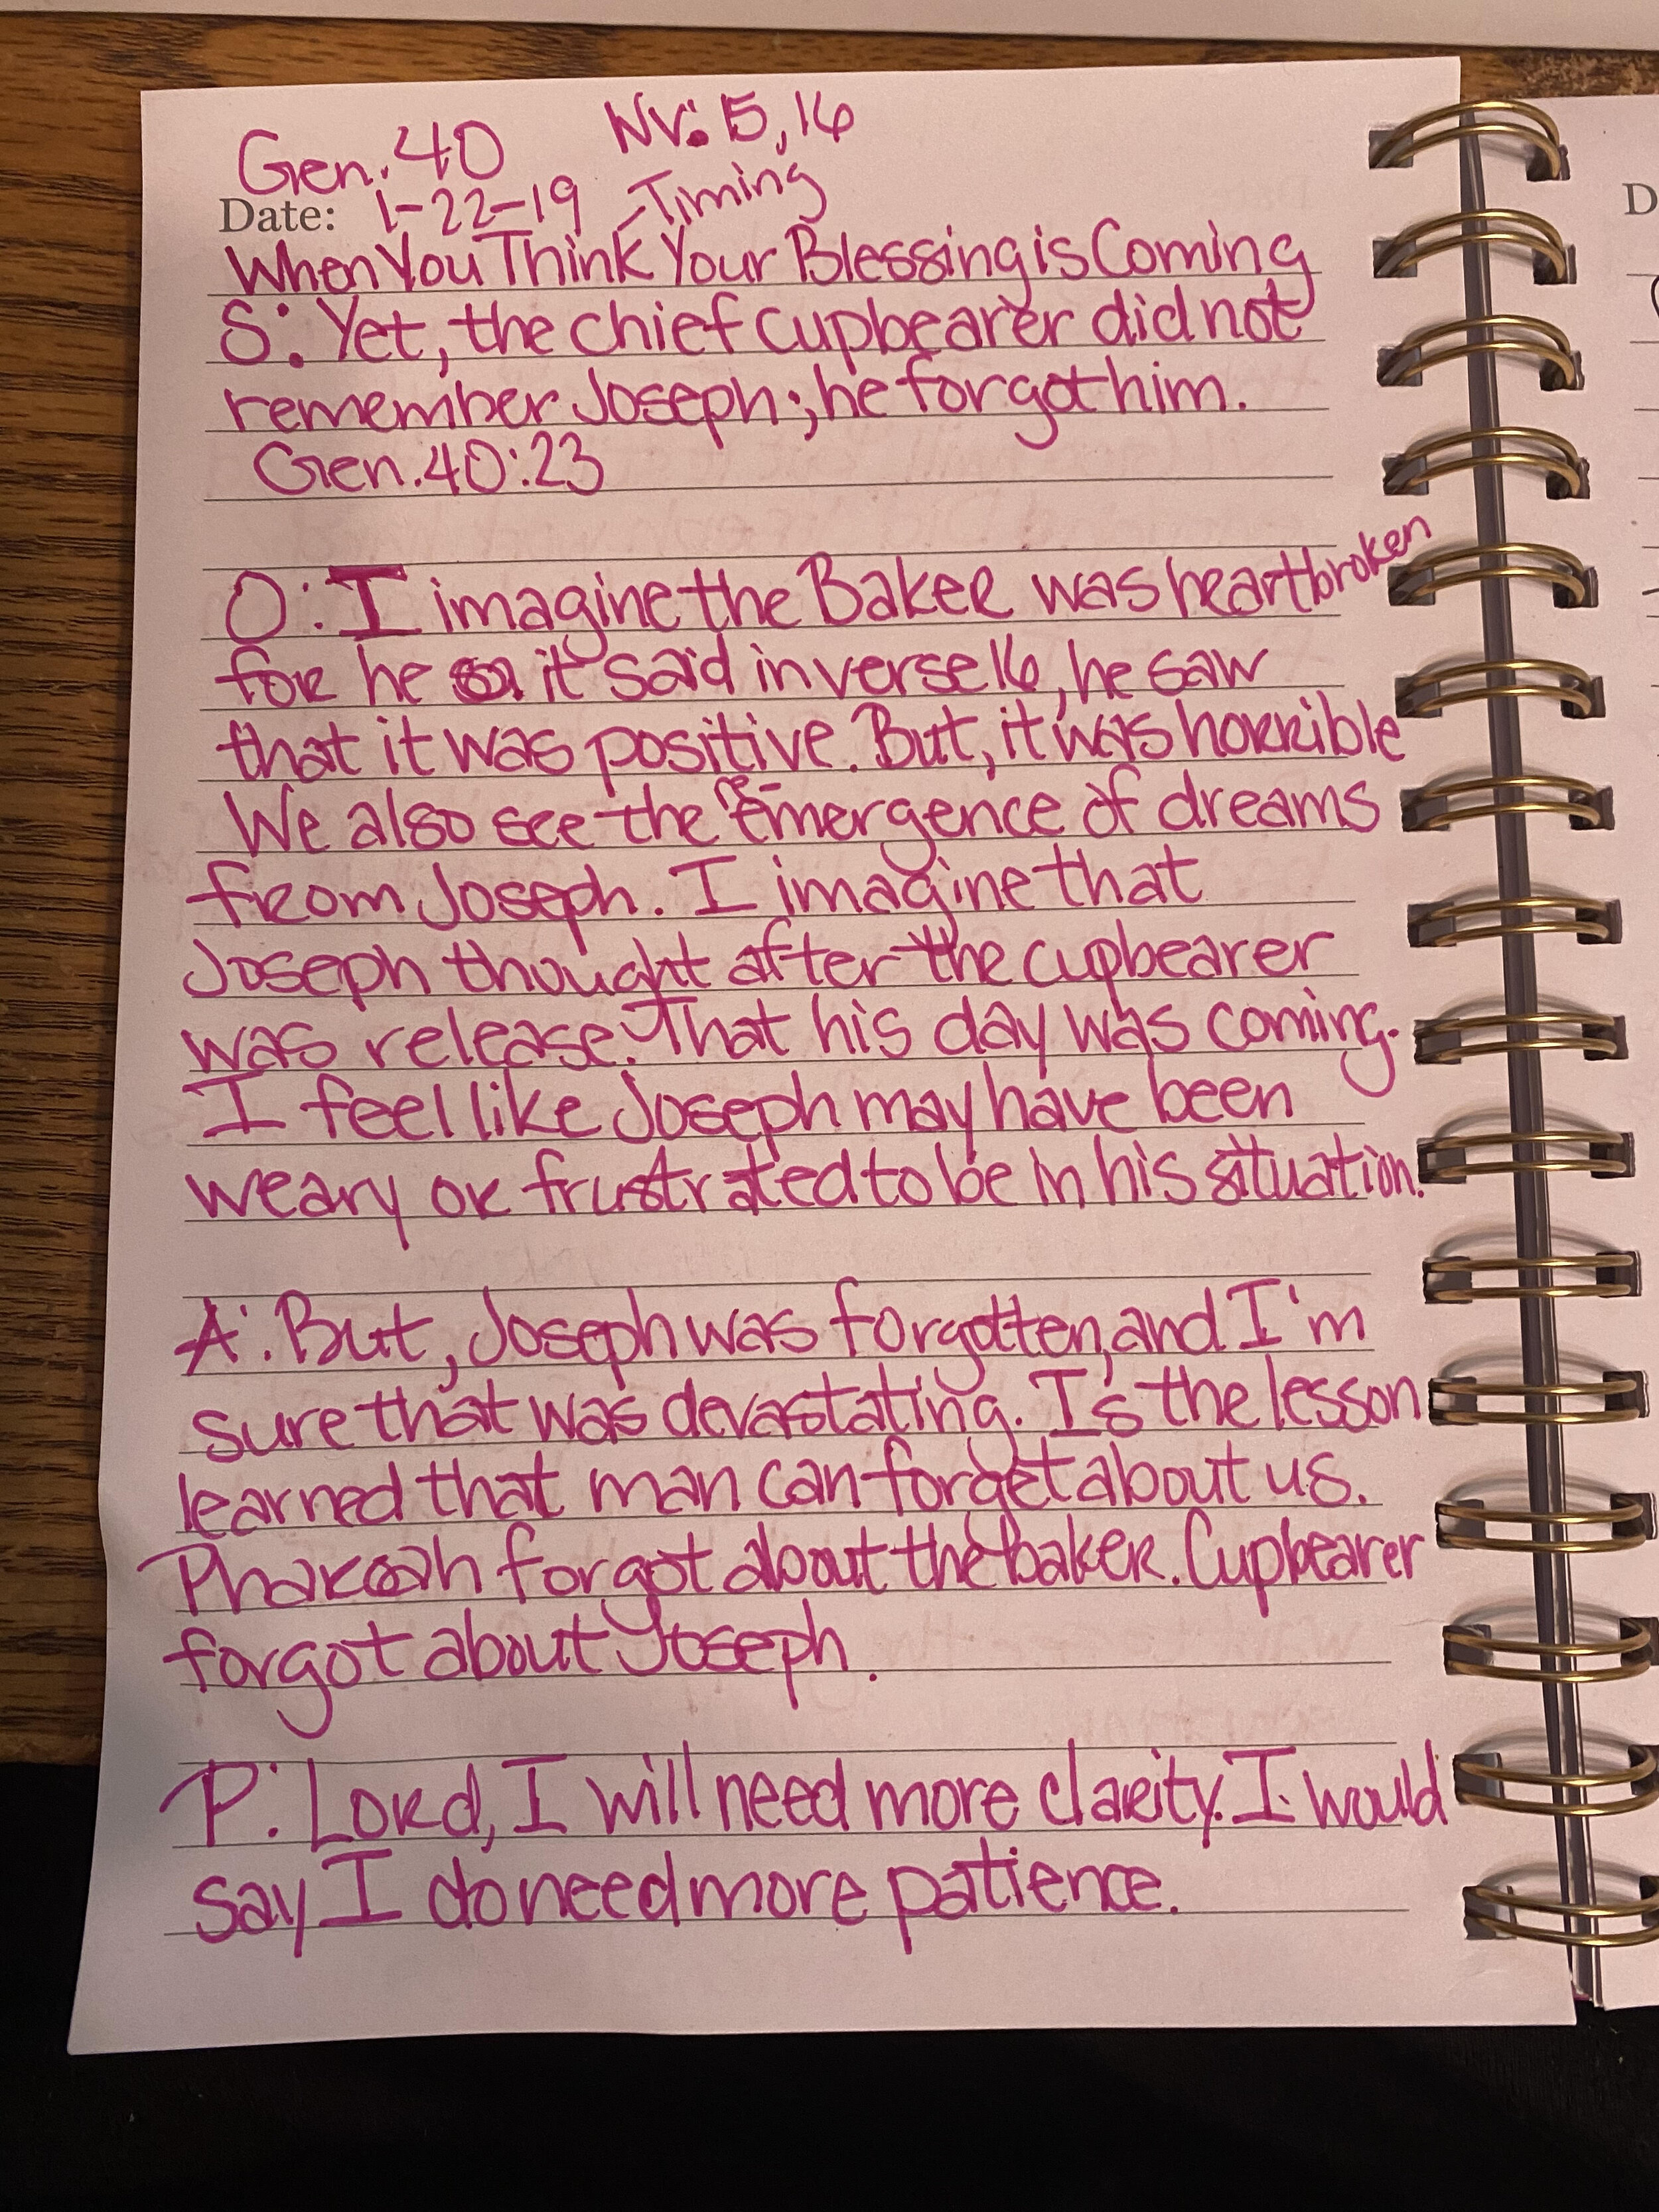 Gen. 40 NV: 15, 16
Date: 1-22-19 - Timing
When You Think Your Blessing is Coming
S: Yet, the chief cupbearer did not
remember Joseph; he forgot him.
Gen. 40:23
O: I imagine the Baker was heartbroken
for he it said in verse 16, he saw
that it was positive. But, it was horrible
We also see the re-emergence of dreams
from Joseph. I imagine that
Joseph thought after the cupbearer
was release. That his day was coming.
I feel like Joseph may have been
weary or frustrated to be in his situation.
A: But, Joseph was forgotten, and I'm
sure that was devastating. Is the lesson
learned that man can forget about us.
Pharoah forgot about the baker. Cupbearer
forgot about Joseph.
P: Lord, I will need more clarity. I would
say I do need more patience.
D